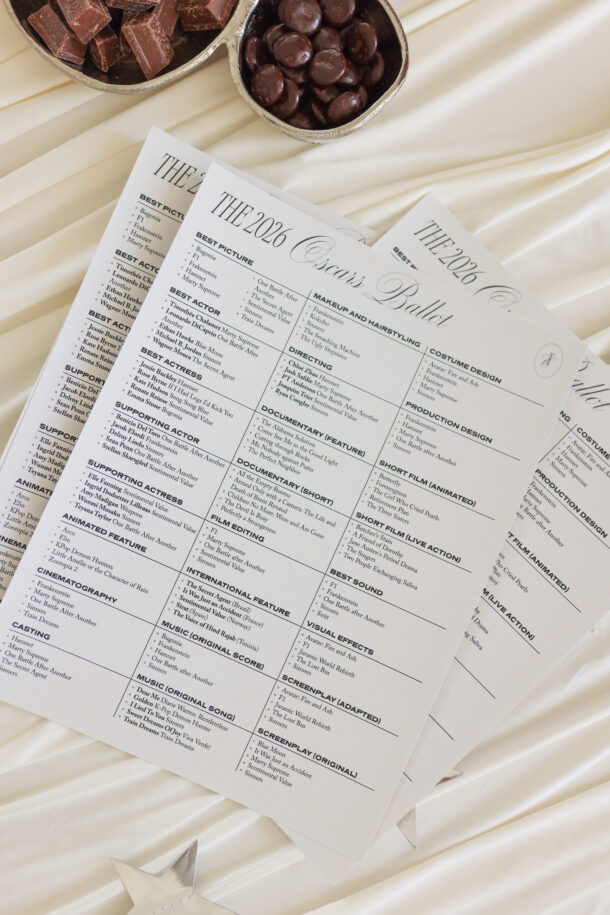 THE 2026 Oscars Ballot
BEST PICTURE
Bagonia
F1
Frakenstein
Hamnet
Marty Supreme
One Battle After
Another
The Secret Agent
Sentimental Value
Sinners
Train Dreams
BEST ACTOR
Timothée Chalamet Marty Supreme
Leonardo DiCaprio One Battle After
Another
Ethan Hawke Blue Moon
Michael B. Jordan Sinners
Wagner Moura The Secret Agent
BEST ACTRESS
Jessie Buckley Hamnet
Rose Byrne If I Had Legs I'd Kick You
Kate Hudson Song Song Blue
Renate Reinsve Sentimental Value
Emma Stone Bugonia
SUPPORTING ACTOR
Benicio Del Toro One Battle After Another
Jacob Elordi Frankenstein
Delroy Lindo Sinners
Sean Penn One Battle After Another
Stellan Skarsgård Sentimental Value
SUPPORTING ACTRESS
Elle Fanning Sentimental Value
Inga Ibsdotter Lilleaas Sentimental Value
Amy Madigan Weapons
Wunmi Mosaku Sinners
Teyana Taylor One Battle After Another
ANIMATED FEATURE
Arco
Elio
KPop Demon Hunters
Little Amélie or the Character of Rain
Zootopia 2
CINEMATOGRAPHY
Frankenstein
Marty Supreme
One Battle After Another
Sinners
Train Dreams
CASTING
Hamnet
Marty Supreme
One Battle after Another
The Secret Agent
Sinners
MAKEUP AND HAIRSTYLING
Frankenstein
Kokuho
Sinners
The Smashing Machine
The Ugly Stepsister
DIRECTING
Chloé Zhao Hamnet
Josh Safdie Marty Supreme
PT Anderson One Battle After Another
Joaquin Trier Sentimental Value
Ryan Coogler Sinners
DOCUMENTARY (FEATURE)
The Alabama Solution
Come See Me in the Good Light
Cutting through Rocks
Mr. Nobody Against Putin
The Perfect Neighbor
DOCUMENTARY (SHORT)
All the Empty Rooms
Armed Only with a Camera: The Life and
Death of Brent Renaud
Children No More: Were and Are Gone
The Devil Is Busy
Perfectly a Strangeness
FILM EDITING
F1
Marty Supreme
One Battle After Another
Sentimental Value
Sinners
INTERNATIONAL FEATURE
The Secret Agent (Brazil)
It Was Just an Accident (France)
Sentimental Value (Norway)
Sirat (Spain)
The Voice of Hind Rajab (Tunisia)
MUSIC (ORIGINAL SCORE)
Bugonia
Frankenstein
Hamnet
One Battle after Another
Sinners
MUSIC (ORIGINAL SONG)
Dear Me Diane Warren: Rentlentless
Golden K-Pop Demon Hunter
I Lied To You Sinners
Sweet Dreams Of Joy Viva Verde!
Train Dreams Train Dreams
COSTUME DESIGN
Avatar: Fire and Ash
Frankenstein
Hamnet
Marty Supreme
Sinners
PRODUCTION DESIGN
Frankenstein
Hamnet
Marty Supreme
One Battle after Another
Sinners
SHORT FILM (ANIMATED)
Butterfly
Forevergreen
The Girl Who Cried Pearls
Retirement Plan
The Three Sisters
SHORT FILM (LIVE ACTION)
Butcher's Stain
A Friend of Dorothy
Jane Austen's Period Drama
The Singers
Two People Exchanging Saliva
BEST SOUND
F1
Frankenstein
One Battle after Another
Sinners
Sirat
VISUAL EFFECTS
Avatar: Fire and Ash
F1
Jurassic World Rebirth
The Lost Bus
Sinners
SCREENPLAY (ADAPTED)
Avatar: Fire and Ash
F1
Jurassic World Rebirth
The Lost Bus
Sinners
SCREENPLAY (ORIGINAL)
Blue Moon
It Was Just an Accident
Marty Supreme
Sentimental Value
Sinners